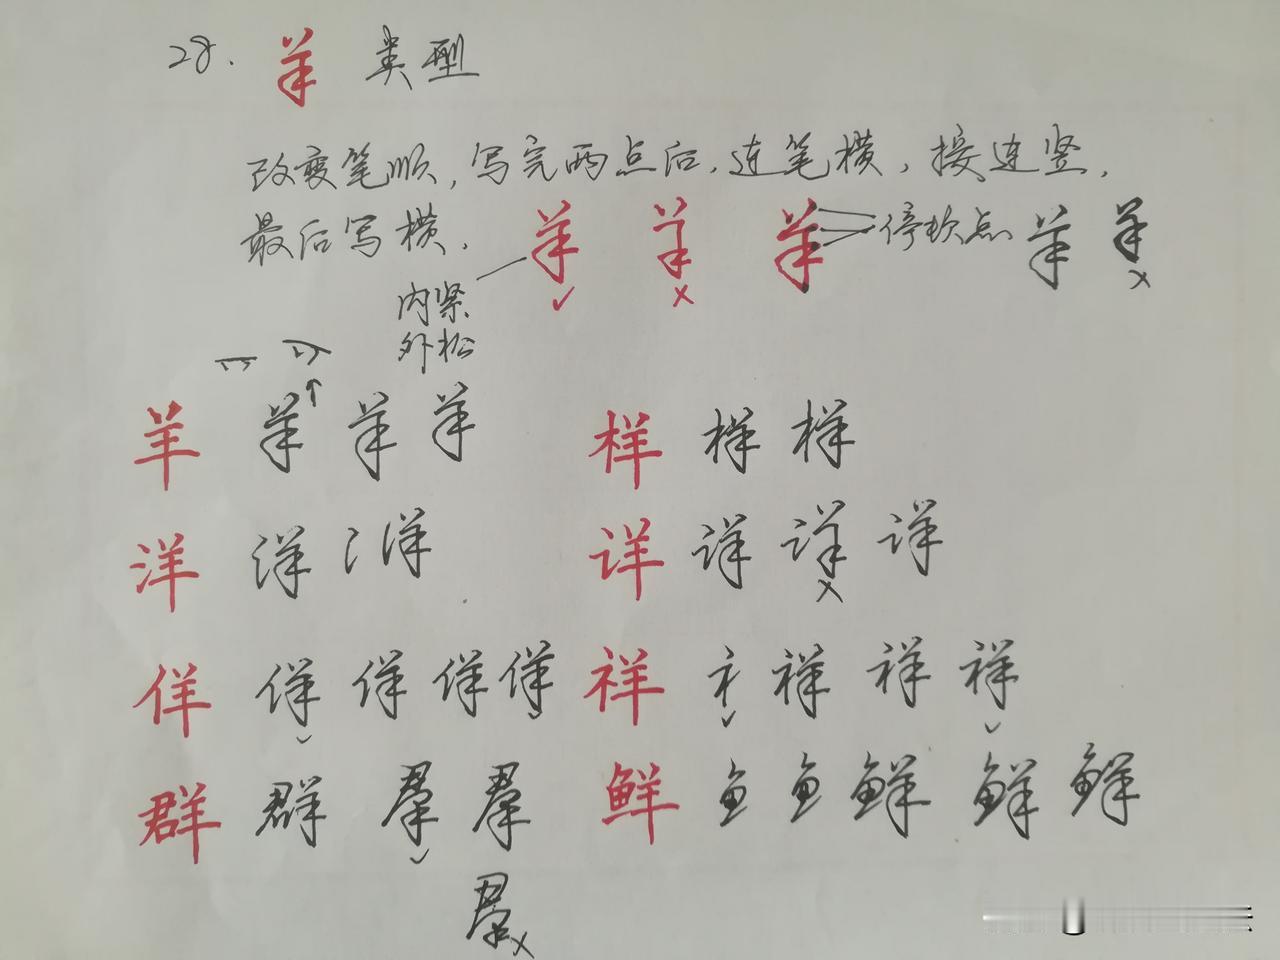 28. 羊 类型
改变笔顺，写完两点后，连笔横，接连竖，
最后写横． 羊 羊 羊 停软点 羊 羊
内紧
外松
羊 羊 羊 羊 样 样 样
洋 洋 氵 洋 详 详 详 详
佯 佯 佯 佯 佯 祥 礻 祥 祥 祥
群 群 羣 羣 鲜 鱼 鱼 鲜 鲜 鲜
羣